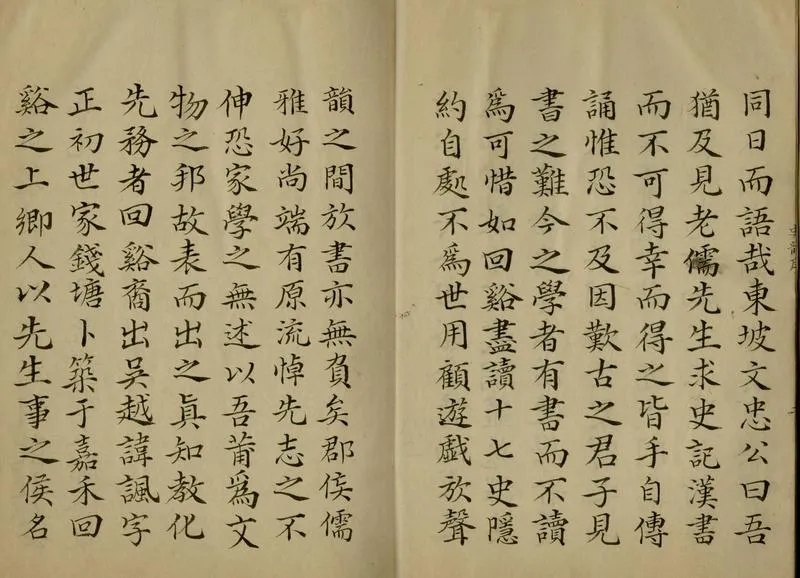 同日而語哉東坡文忠公曰吾
猶及見老儒先生求史記漢書
而不可得幸而得之皆手自傳
誦惟恐不及因歎古之君子見
書之難今之學者有書而不讀
爲可惜如回谿盡讀十七史隱
約自處不爲世用顧遊戲放聲
韻之間放書亦無負矣郡侯儒
雅好尚端有原流悼先志之不
伸恐家學之無述以吾莆爲文
物之邦故表而出之眞知教化
先務者回谿裔出吳越諱諷字
正初世家錢塘卜築于嘉禾回
谿之上鄉人以先生事之侯名